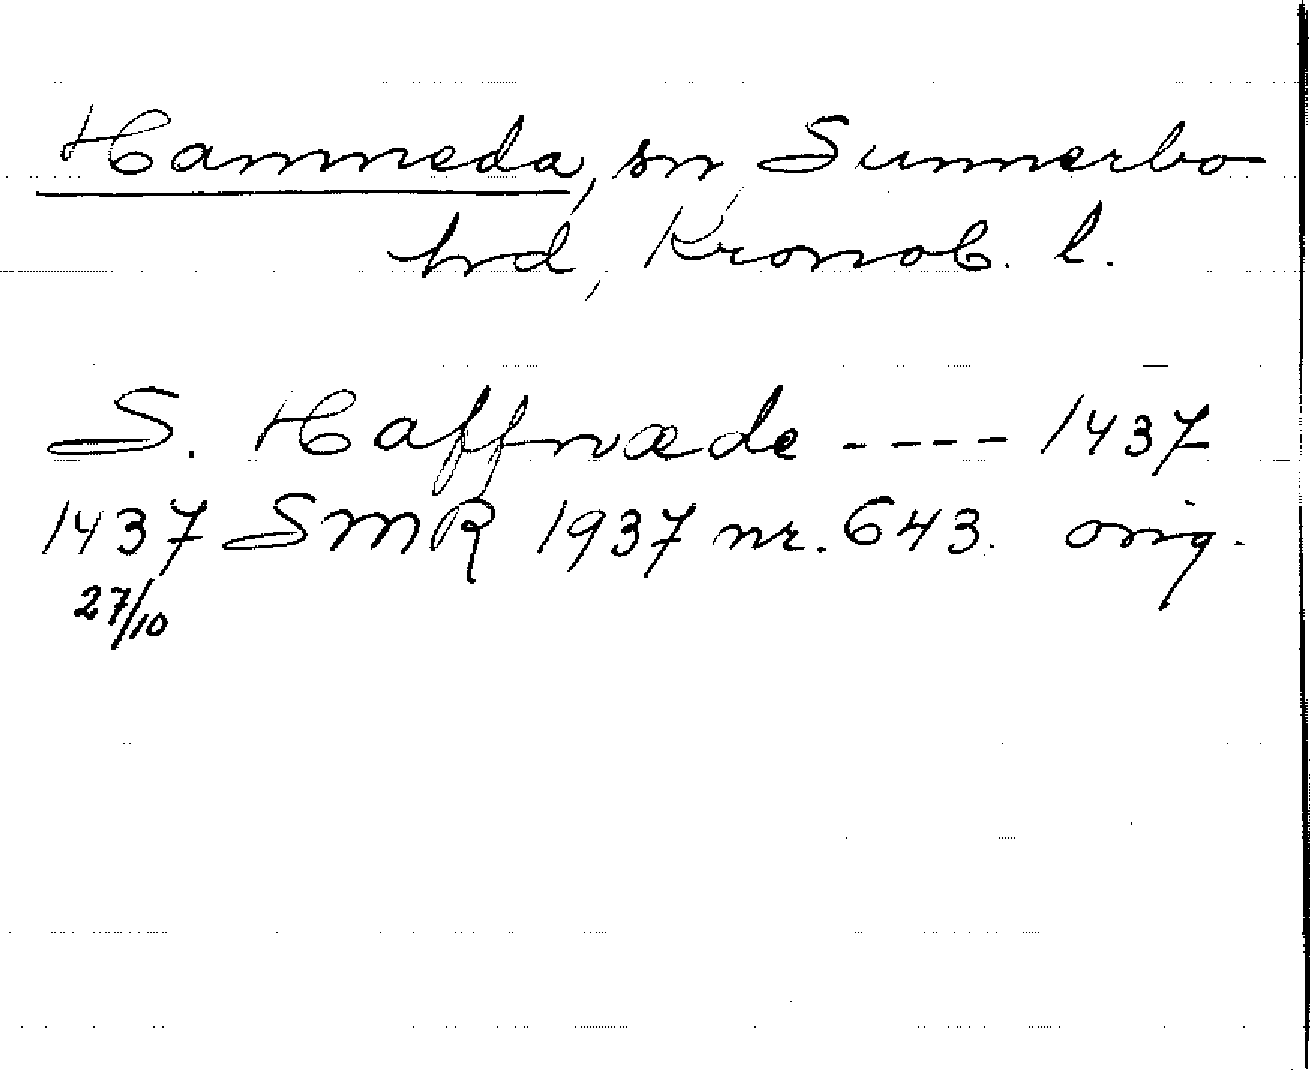 Hamneda, sn, Sunnerbo
hd, Kronob. l.
S. Haffnæde ---- 1437
1437 SMR 1937 nr. 643. orig.
27/10